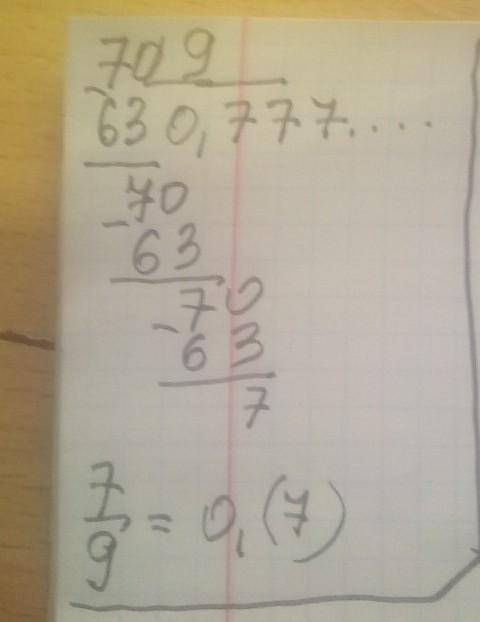 70 9
-63 0,777....
70
-63
70
-63
7
7/9 = 0,(7)